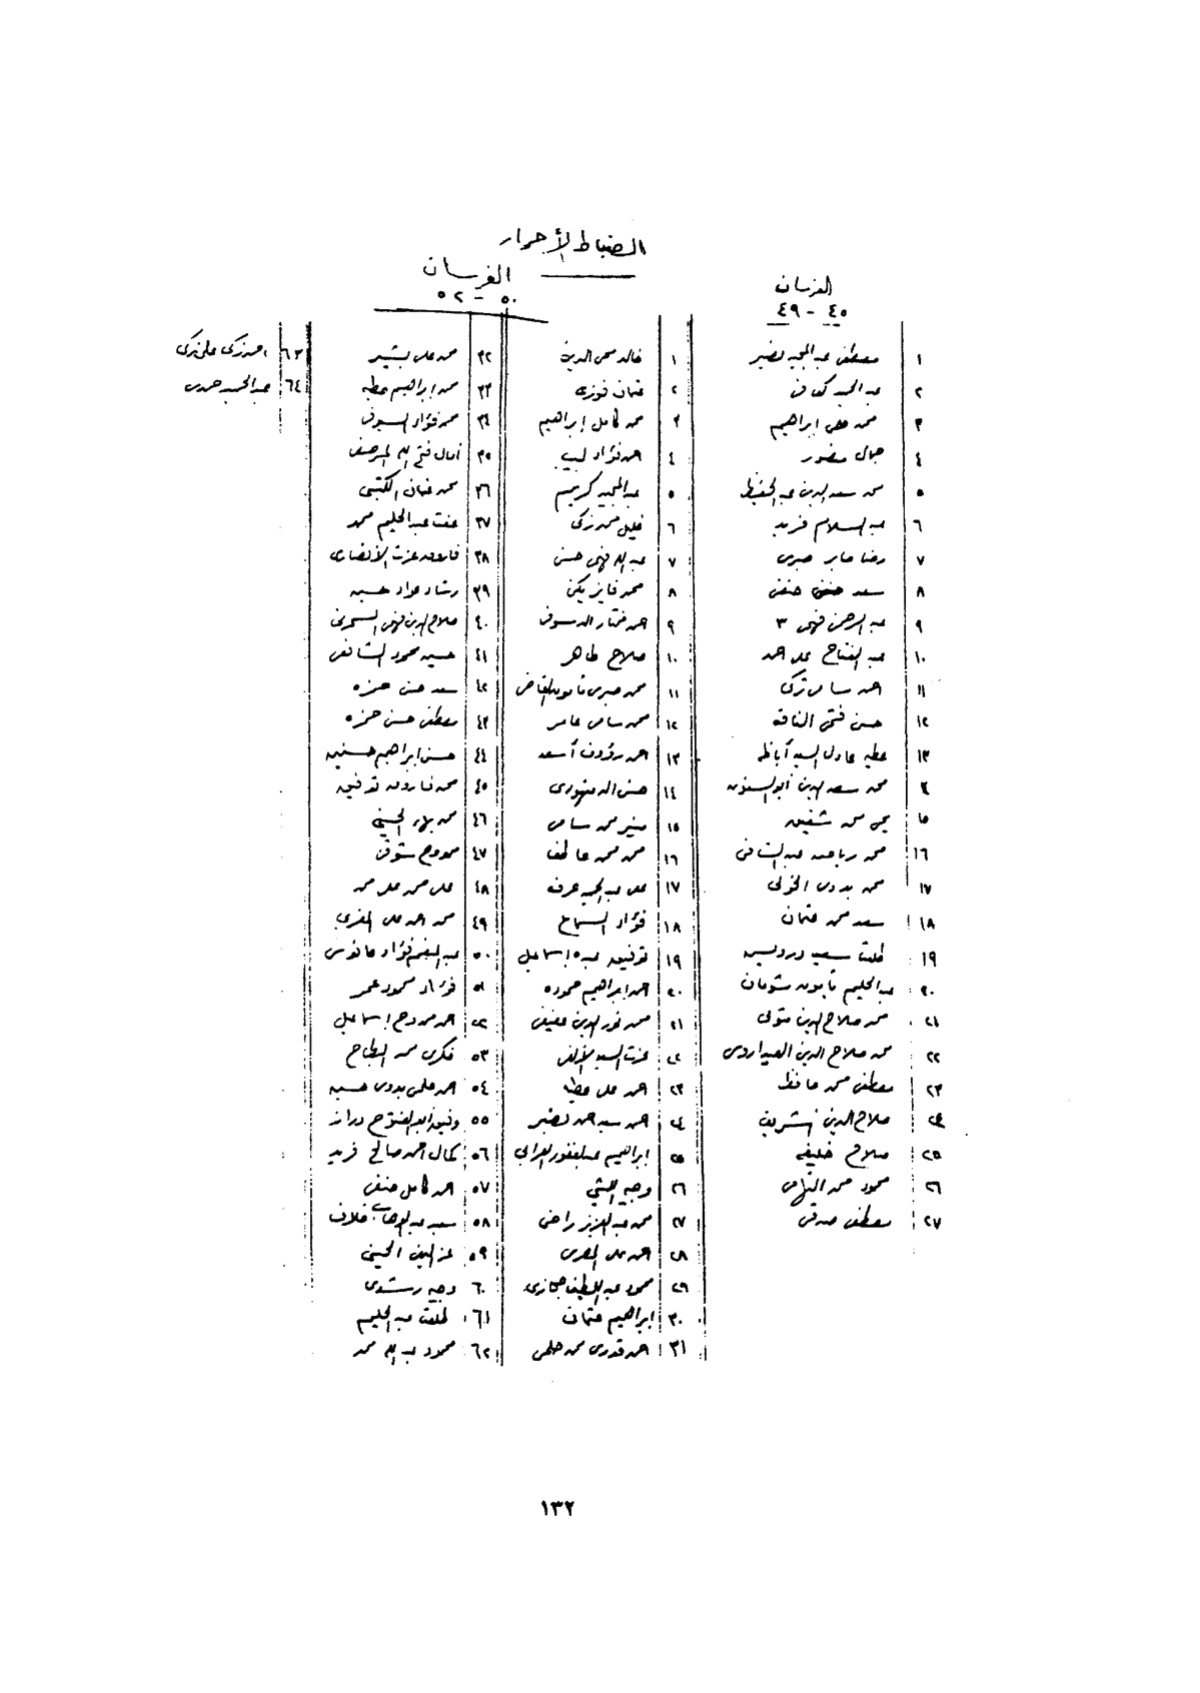 الضباط الأحرار
الفرسان
٤٥ - ٤٩
١ مصطفى عبد المجيد نصير
٢ عبد الحميد كفافى
٣ محمد ابراهيم
٤ جمال منصور
٥ محمد سعد الدين عبد الحفيظ
٦ عبد السلام فريد
٧ رضا صابر صبرى
٨ سعد حنفى حنفى
٩ عبد الرحمن فهمى ٣
١٠ عبد الفتاح على احمد
١١ احمد سامى تركى
١٢ حسن فتحى الناقه
١٣ عطيه عادل السيد أباظه
١٤ محمد سعد الدين ابو السنون
١٥ يحى محمد شفيق
١٦ محمد رياض عبد الشافى
١٧ محمد بدوى الخولى
١٨ سعد محمد عثمان
١٩ طلعت سعيد درويش
٢٠ عبد الحليم مأمون شومان
٢١ محمد صلاح الدين متولى
٢٢ محمد صلاح الدين العيداروسى
٢٣ مصطفى محمد حافظ
٢٤ صلاح الدين الشريف
٢٥ صلاح خليفه
٢٦ محمود محمد التهامى
٢٧ مصطفى صدقى
الفرسان
٥٠ - ٥٢
١ خالد محى الدين
٢ عثمان فوزى
٣ محمد كامل إبراهيم
٤ احمد فؤاد لبيب
٥ عبد المجيد كريم
٦ خليل محمد زكى
٧ عبد الله فهمى حسن
٨ محمد فايز يكن
٩ احمد مختار الدسوقى
١٠ صلاح طاهر
١١ محمد صبرى مأمون القاضى
١٢ محمد سامى عامر
١٣ احمد رؤوف أسعد
١٤ حسن الدمنهورى
١٥ منير محمد سامى
١٦ محمد محمد عاطف
١٧ على عبد الحميد عرفه
١٨ فؤاد السماح
١٩ توفيق عبده اسماعيل
٢٠ احمد ابراهيم حموده
٢١ محمد نور الدين عفيفى
٢٢ عزت السيد الألفى
٢٣ احمد على عطيه
٢٤ احمد سيد احمد نصير
٢٥ ابراهيم عبد الغفور العرابى
٢٦ وجيه
٢٧ محمد عبد العزيز راضى
٢٨ احمد على المصرى
٢٩ محمود عبد اللطيف حجازى
٣٠ إبراهيم عثمان
٣١ احمد قدرى محمد حلمى
٣٢ محمد على بشير
٣٣ محمد ابراهيم عطيه
٣٤ محمد فؤاد
٣٥ آمال فتح الله المرصفى
٣٦ محمد عثمان الكتبى
٣٧ عفت عبد الحليم محمد
٣٨ فاروق عزت الأنصارى
٣٩ رشاد مراد حسين
٤٠ صلاح الدين فهمى السحرتى
٤١ حسين محمود الشافعى
٤٢ سعد حسن حمزه
٤٣ مصطفى حسن حمزه
٤٤ حسن ابراهيم حسنين
٤٥ محمد فاروق توفيق
٤٦ محمد بهاء الحينى
٤٧ ممدوح شوقى
٤٨ على محمد على محمد
٤٩ محمد احمد على المغربى
٥٠ عبد المنعم فؤاد فانوس
٥١ فؤاد محمود عمر
٥٢ احمد ممدوح إسماعيل
٥٣ فكرى محمد البطاح
٥٤ احمد حلمى بدوى حسين
٥٥ وفيق ابو الفتوح دراز
٥٦ كمال احمد صالح فريد
٥٧ احمد كامل حنفى
٥٨ سيد عبد الوهاب خلاف
٥٩ عز الدين الحينى
٦٠ وجيه رشدى
٦١ طلعت عبد الحليم
٦٢ محمود عبد الله محمد
٦٣ احمد زكى على زكى
٦٤ عبد الحميد حمدى
١٣٢